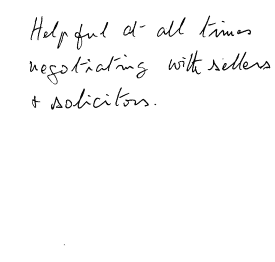 Helpful at all times
negotiating with sellers
+ solicitors.